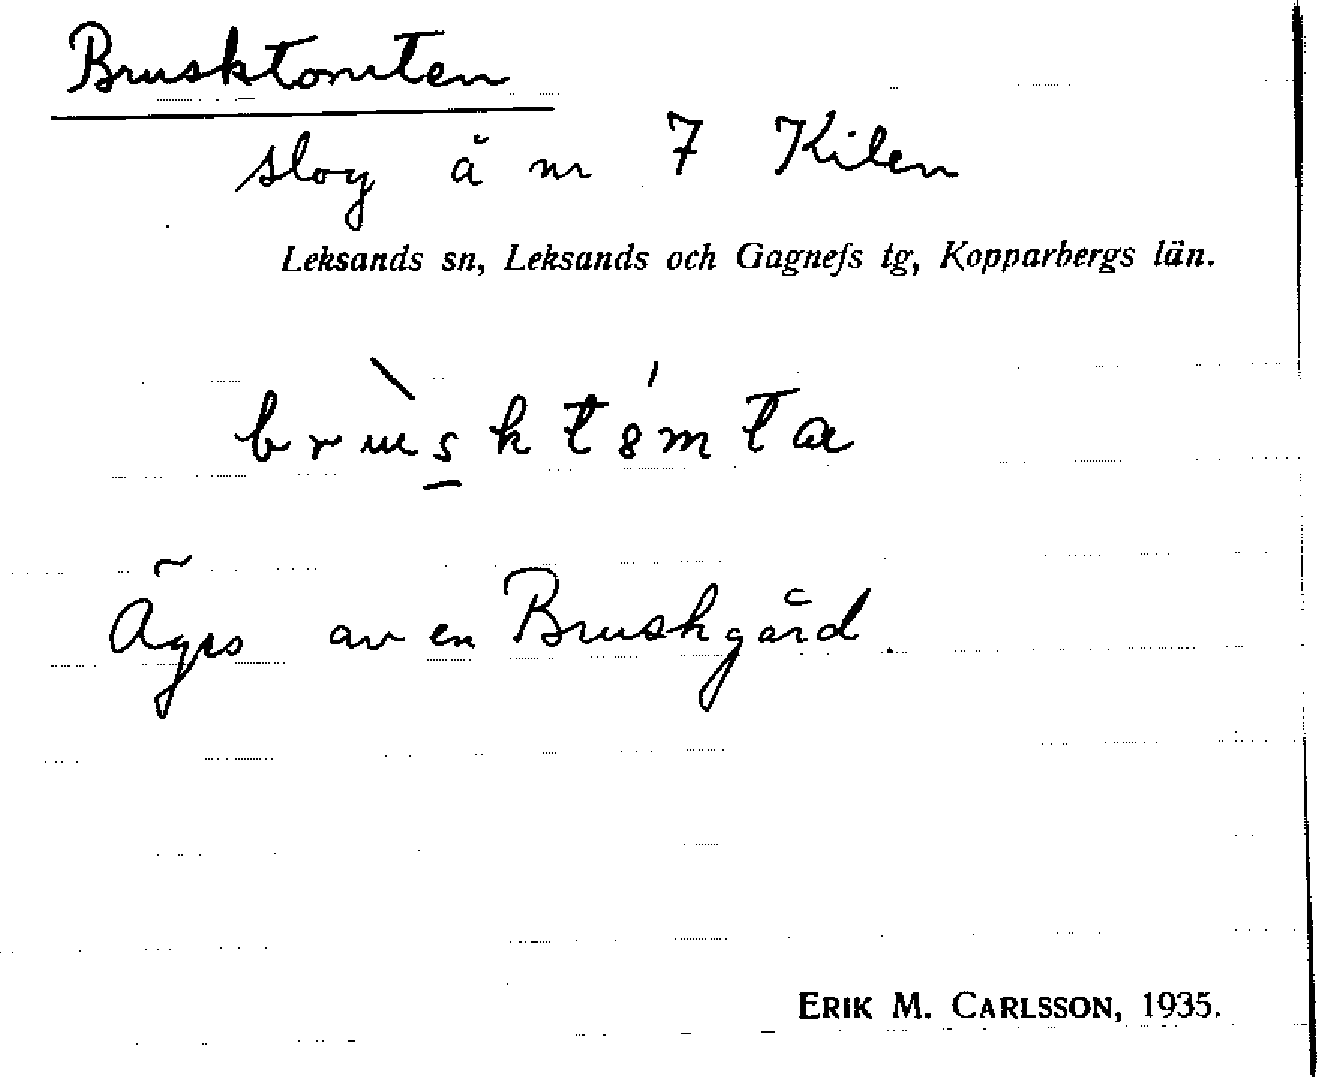 Brusktomten
slog å nr 7 Kilen
Leksands sn, Leksands och Gagnefs tg, Kopparbergs län.
Ägs av en Bruskgård.
ERIK M. CARLSSON, 1935.